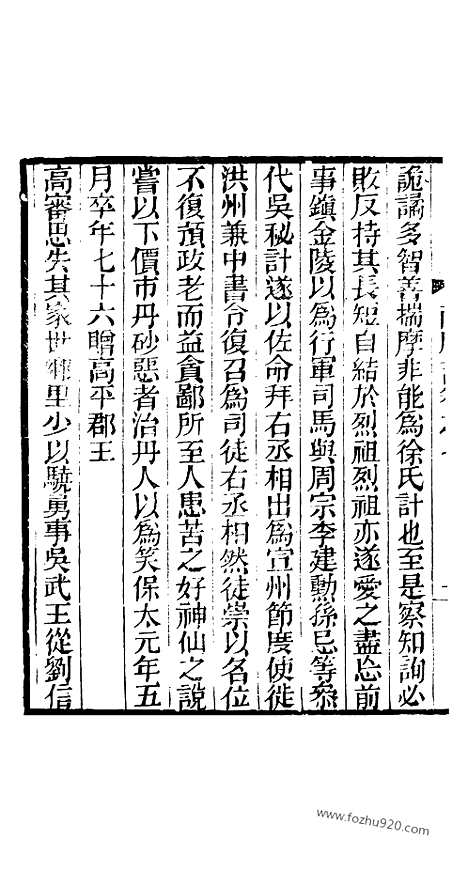 詭譎多智善揣摩非能爲徐氏計也至是察知詢必
敗反持其長短自結於烈祖烈祖亦遂愛之盡忘前
事鎮金陵以爲行軍司馬與周宗李建勳孫忌等叅
代吳秘計遂以佐命拜右丞相出爲宣州節度使徙
洪州兼中書令復召爲司徒右丞相然徒崇以名位
不復預政老而益貪鄙所至人患苦之好神仙之說
嘗以下價市丹砂惡者治丹人以爲笑保太元年五
月卒年七十六贈高平郡王
高審思失其家世鄉里少以驍勇事吳武王從劉信
www.fozhu920.com